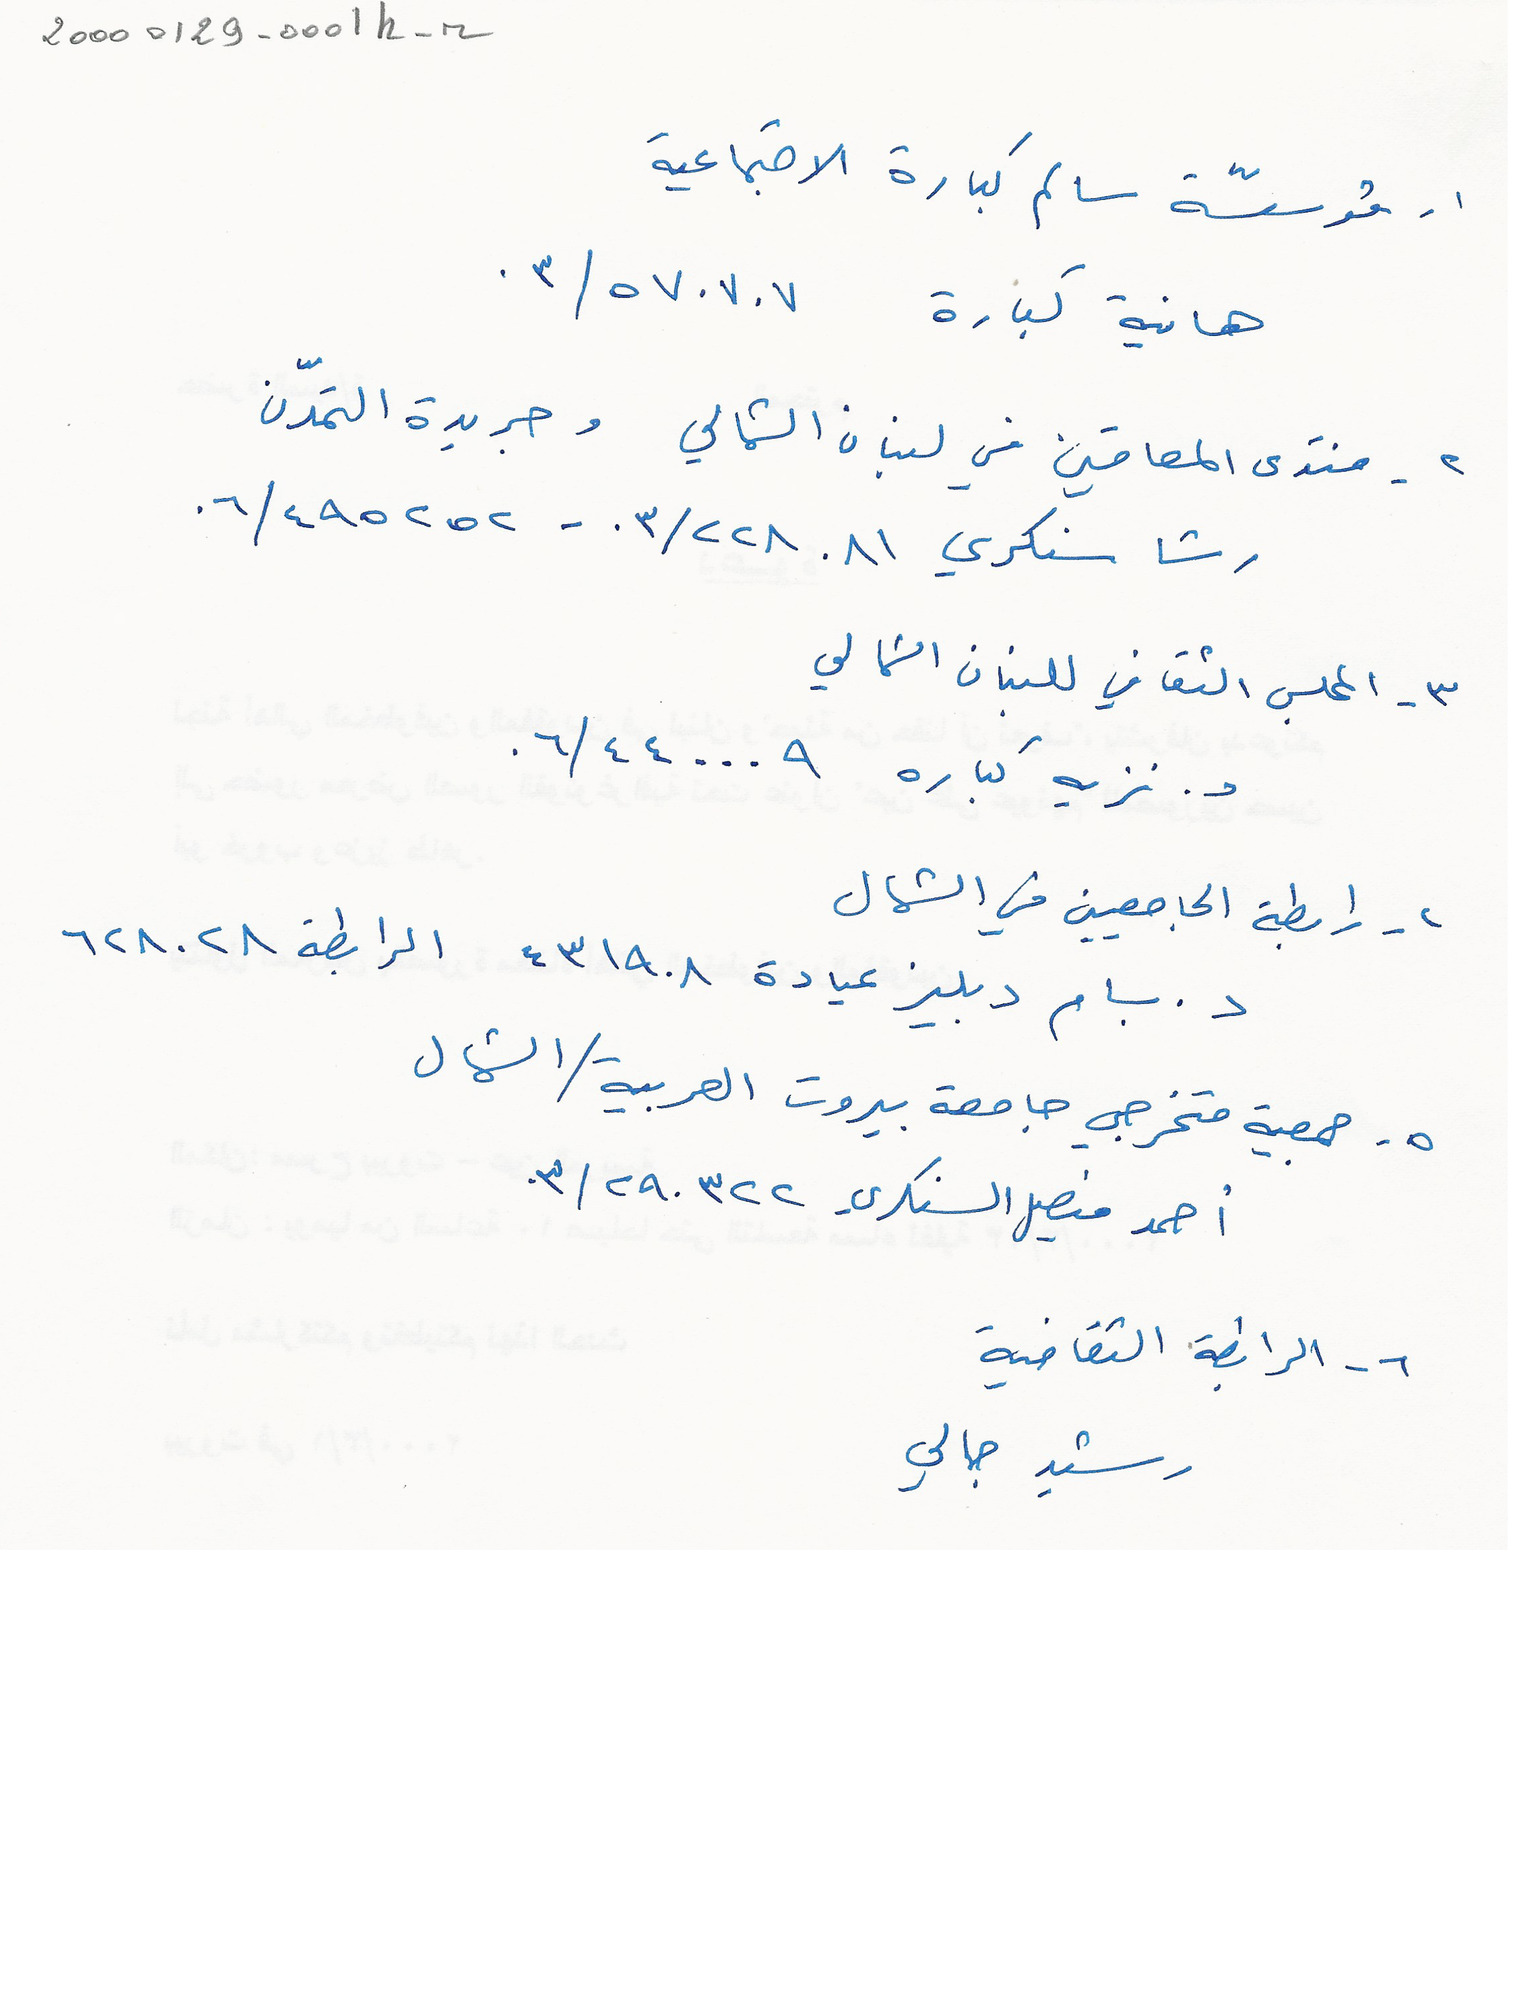 20000129-0001h-r
١- مؤسسّة سالم كبارة الاجتماعية
هانية كبارة ٠٣/٥٧٠٧٠٧
٢- منتدى المعاقين في لبنان الشمالي و جريدة التمدّن
رشا سنكري ٠٣/٢٢٨٠٨١ - ٠٦/٤٩٥٢٥٢
٣- المجلس الثقافي للبنان الشمالي
د. نزيه كباره ٠٦/٤٤٠٠٠٩
٢- رابطة الجامعيين في الشمال
د. بسام دبليز عيادة ٤٣١٩٠٨ الرابطة ٦٢٨٠٢٨
٥- جمعية متخرجي جامعة بيروت العربية/الشمال
أحمد فيصل السنكري ٠٣/٢٩٠٣٢٢
٦- الرابطة الثقافية
رشيد جمالي